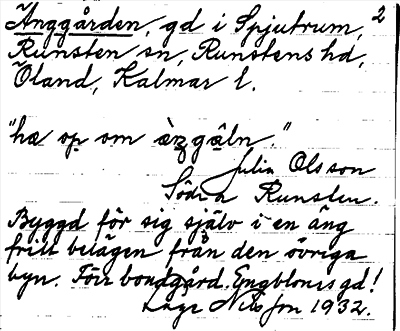 Änggården, gd i Spjutrum, 2
Runsten sn, Runstens hd,
Öland, Kalmar l.
"hæ op om æ̀ŋgạ̊ln."
Julia Olsson
Södra Runsten.
Byggd för sig själv i en äng
fritt belägen från den övriga
byn. Förr bondgård. Engbloms gd!
Lage Nilsson 1932.